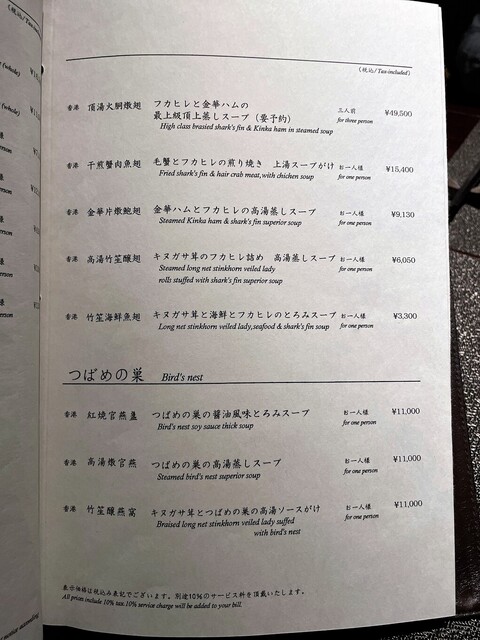 (税込/Tax-included)
香港 頂湯火胴燉翅 フカヒレと金華ハムの 三人前 ¥49,500
最上級頂上蒸しスープ(要予約) for three person
High class brasied shark's fin & Kinka ham in steamed soup
香港 干煎蟹肉魚翅 毛蟹とフカヒレの煎り焼き 上湯スープがけ お一人様 ¥15,400
Fried shark's fin & hair crab meat,with chichen soup for one person
香港 金華片燉鮑翅 金華ハムとフカヒレの高湯蒸しスープ お一人様 ¥9,130
Steamed Kinka ham & shark's fin superior soup for one person
香港 高湯竹笙釀翅 キヌガサ茸のフカヒレ詰め 高湯蒸しスープ お一人様 ¥6,050
Steamed long net stinkhorn veiled lady for one person
rolls stuffed with shark's fin superior soup
香港 竹笙海鮮魚翅 キヌガサ茸と海鮮とフカヒレのとろみスープ お一人様 ¥3,300
Long net stinkhorn veiled lady,seafood & shark's fin soup for one person
つばめの巣 Bird's nest
香港 紅焼官燕盞 つばめの巣の醤油風味とろみスープ お一人様 ¥11,000
Bird's nest soy sauce thick soup for one person
香港 高湯燉官燕 つばめの巣の高湯蒸しスープ お一人様 ¥11,000
Steamed bird's nest superior soup for one person
香港 竹笙釀燕窩 キヌガサ茸とつばめの巣の高湯ソースがけ お一人様 ¥11,000
Braised long net stinkhorn veiled lady suffed for one person
with bird's nest
表示価格は税込み表記でございます。別途10%のサービス料を頂戴いたします。
All prices include 10% tax.10% service charge will be added to your bill.